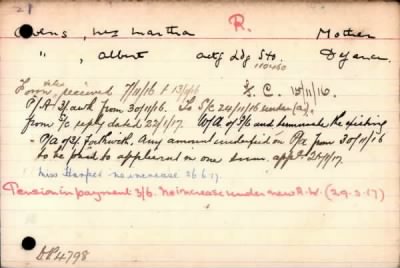 21
Owens, Mrs Martha R. Mother
" , Albert actg Ldg Sto Defiance.
Form received 7/11/16 & 13/11/16 S. C. 15/11/16.
P/A 3/- awk from 30/11/16. To S/C 24/11/16 under (a).
from S/C reply dated 22/1/17. W/A of 3/6 and terminate the existing
P/a of 3/- forthwith. Any amount underpaid on P/a from 30/11/16
to be paid to applicant in one sum. appd 25/1/17.
Miss Harper no increase 26.6.17
Pension in payment 3/6. No increase under new R.W. (29.3.17)
DP4798